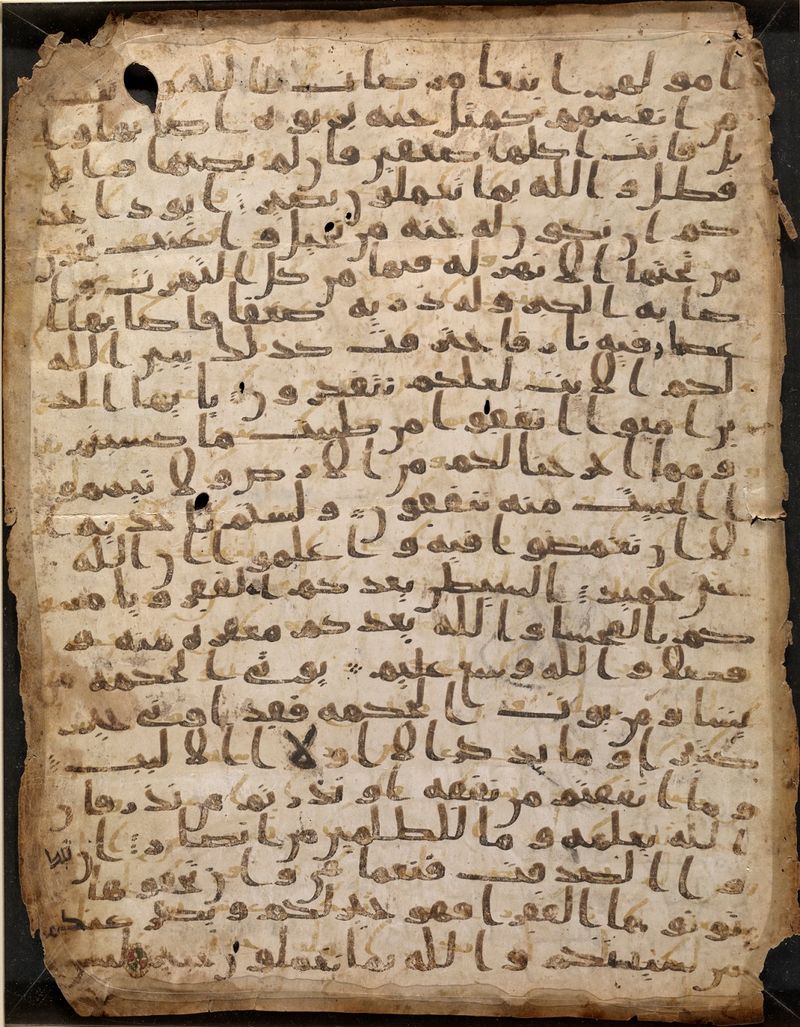 امولهم ابتغا مرضات الله وتثبيتا
من انفسهم كمثل جنه بربوه اصابها وا
بل فاتت اكلها ضعفين فان لم يصبها وابل
فطل والله بما تعملون بصير ايود احد
كم ان تكون له جنه من نخيل واعنب تجري
من تحتها الانهر له فيها من كل الثمرت وا
صابه الكبر وله ذريه ضعفا فاصابها ا
عصار فيه نار فاحترقت كذلك يبين الله
لكم الايت لعلكم تتفكرون يايها الذ
ين امنوا انفقوا من طيبت ما كسبتم
ومما اخرجنا لكم من الارض ولا تيممو
ا الخبيث منه تنفقون ولستم باخذيه ا
لا ان تغمضوا فيه واعلموا ان الله
غني حميد الشيطن يعدكم الفقر ويامر
كم بالفحشا والله يعدكم مغفره منه و
فضلا والله وسع عليم يوتي الحكمه من
يشا ومن يوت الحكمه فقد اوتي خير
كثيرا وما يذكر الا اولا الالبب
وما انفقتم من نفقه او نذرتم من نذر فان
الله يعلمه وما للظلمين من انصار ان
تبدوا الصدقت فنعما هي وان تخفوها
وتوتوها الفقرا فهو خير لكم ويكفر عنكم
من سيتكم والله بما تعملون خبير ليس